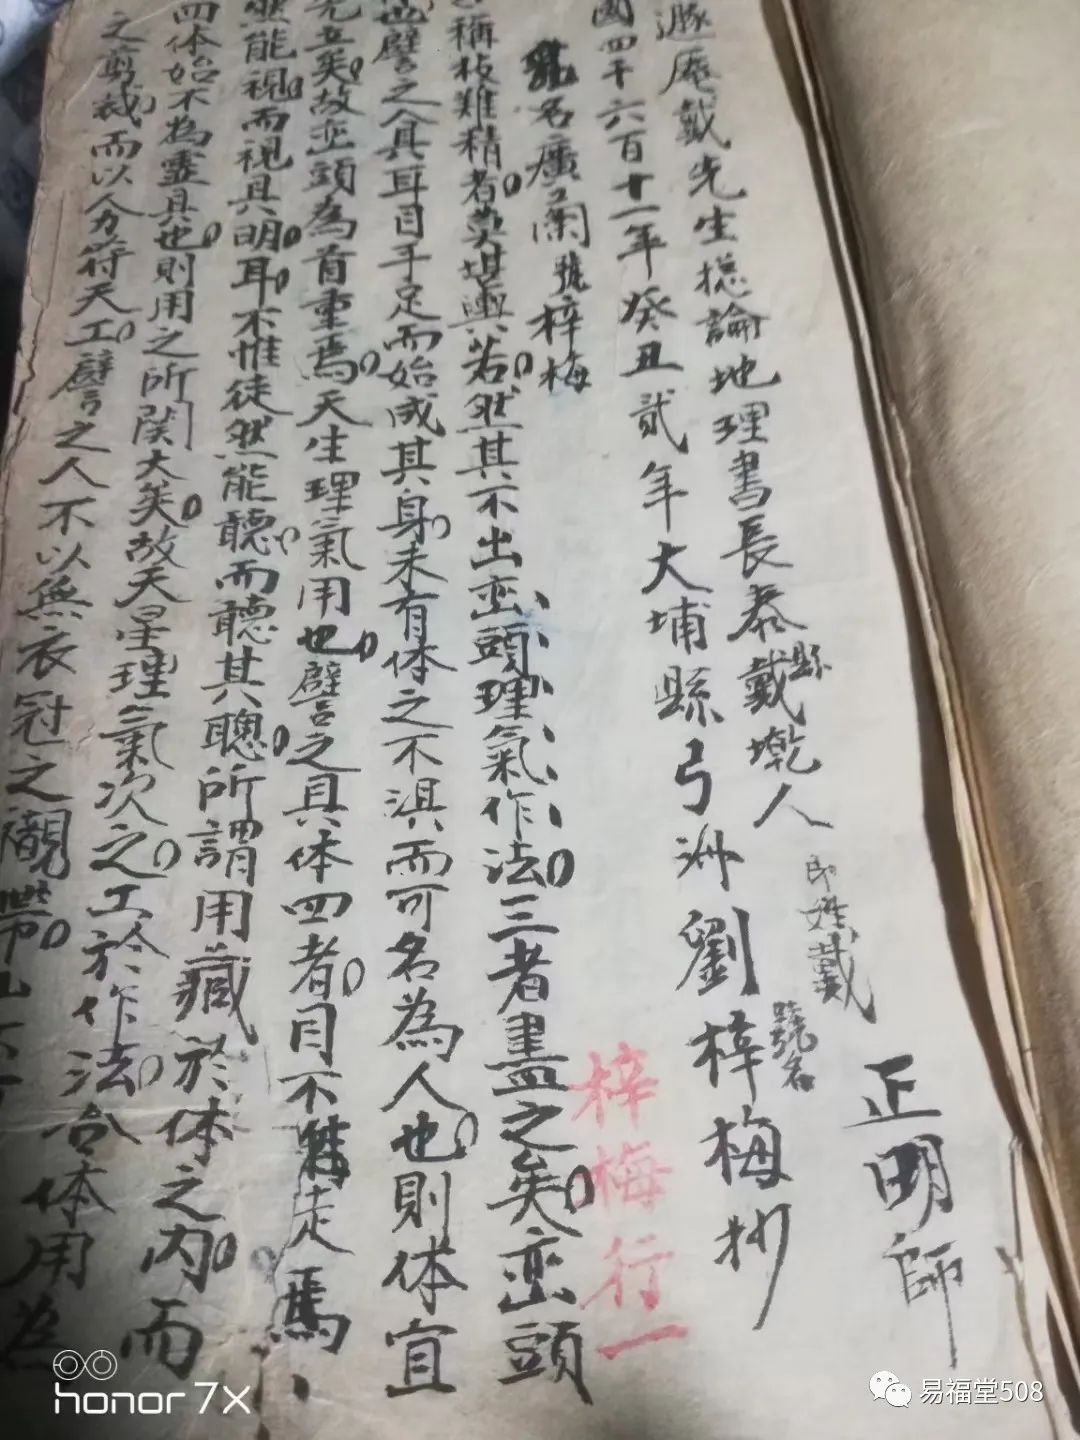 遯庵戴先生總論地理書長泰縣戴墘人
即姓戴
正明師
國四千六百十一年癸丑貳年大埔縣弓洲劉梓梅抄
號名
乳名廣蘭號梓梅
梓梅行一
稱枝難精者莫堪輿若然其不出巒頭理氣作法三者盡之矣巒頭
也譬之人具耳目手足而始成其身未有体之不淇而可名為人也則体宜
先立矣故巒頭為首重焉天生理氣用也譬之具体四者目不能走焉
能視而視具明耳不惟徒然能聽而聽其聰所謂用藏於体之內而
四体始不為靈具也則用之所関大矣故天星理氣次之工於作法合体用為
之剪裁而以人力符天工譬之人不以無衣冠之觀
honor 7X
易福堂508